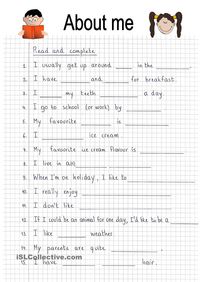 About me
Read and complete
1. I usually get up around ____ in the ____.
2. I have ____ and ____ for breakfast.
3. I ____ my teeth ____ a day.
4. I go to school (or work) by ____.
5. My favourite ____ is ____.
6. I ____ ice cream.
7. My favourite ice cream flavour is ____.
8. I live in a(n) ____.
9. When I'm on holiday, I like to ____.
10. I really enjoy ____.
11. I don't like ____.
12. If I could be an animal for one day, I'd like to be a ____.
13. I like ____ weather.
14. My parents are quite ____.
15. I have ____ hair.
iSLCollective.com